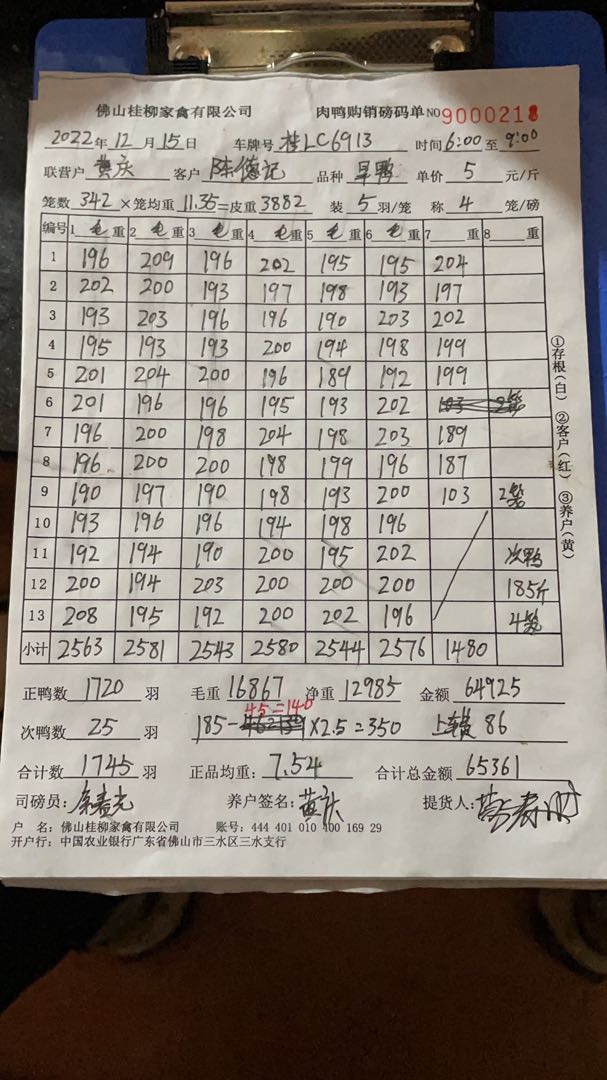 佛山桂柳家禽有限公司 肉鸭购销磅码单 NO 9000218
2022年 12月 15日 车牌号 桂LC6913 时间 6:00 至 9:00
联营户 黄庆 客户 陈德记 品种 旱鸭 单价 5 元/斤
笼数 342 ×笼均重 11.35=皮重 3882 装 5 羽/笼 称 4 笼/磅
编号 1 毛重 2 毛重 3 毛重 4 毛重 5 毛重 6 毛重 7 重 8 重
1 196 209 196 202 195 195 204
2 202 200 193 197 198 193 197
3 193 203 196 196 190 203 202
4 195 193 193 200 194 198 199
5 201 204 200 196 189 192 199
6 201 196 196 195 193 202 103 2笼
7 196 200 198 204 198 203 189
8 196 200 200 198 199 196 187
9 190 197 190 198 193 200 103 2笼
10 193 196 196 194 198 196
11 192 194 190 200 195 202 次鸭
12 200 194 203 200 200 200 185斤
13 208 195 192 200 202 196 4笼
小计 2563 2581 2543 2580 2544 2576 1480
正鸭数 1720 羽 毛重 16867 净重 12985 金额 64925
45=140
次鸭数 25 羽 185- ×2.5=350 上车费 86
合计数 1745 羽 正品均重: 7.54 合计总金额 65361
司磅员: 养户签名: 黄庆 提货人:
户 名: 佛山桂柳家禽有限公司 账号: 444 401 010 400 169 29
开户行: 中国农业银行广东省佛山市三水区三水支行
①存根(白) ②客户(红) ③养户(黄)